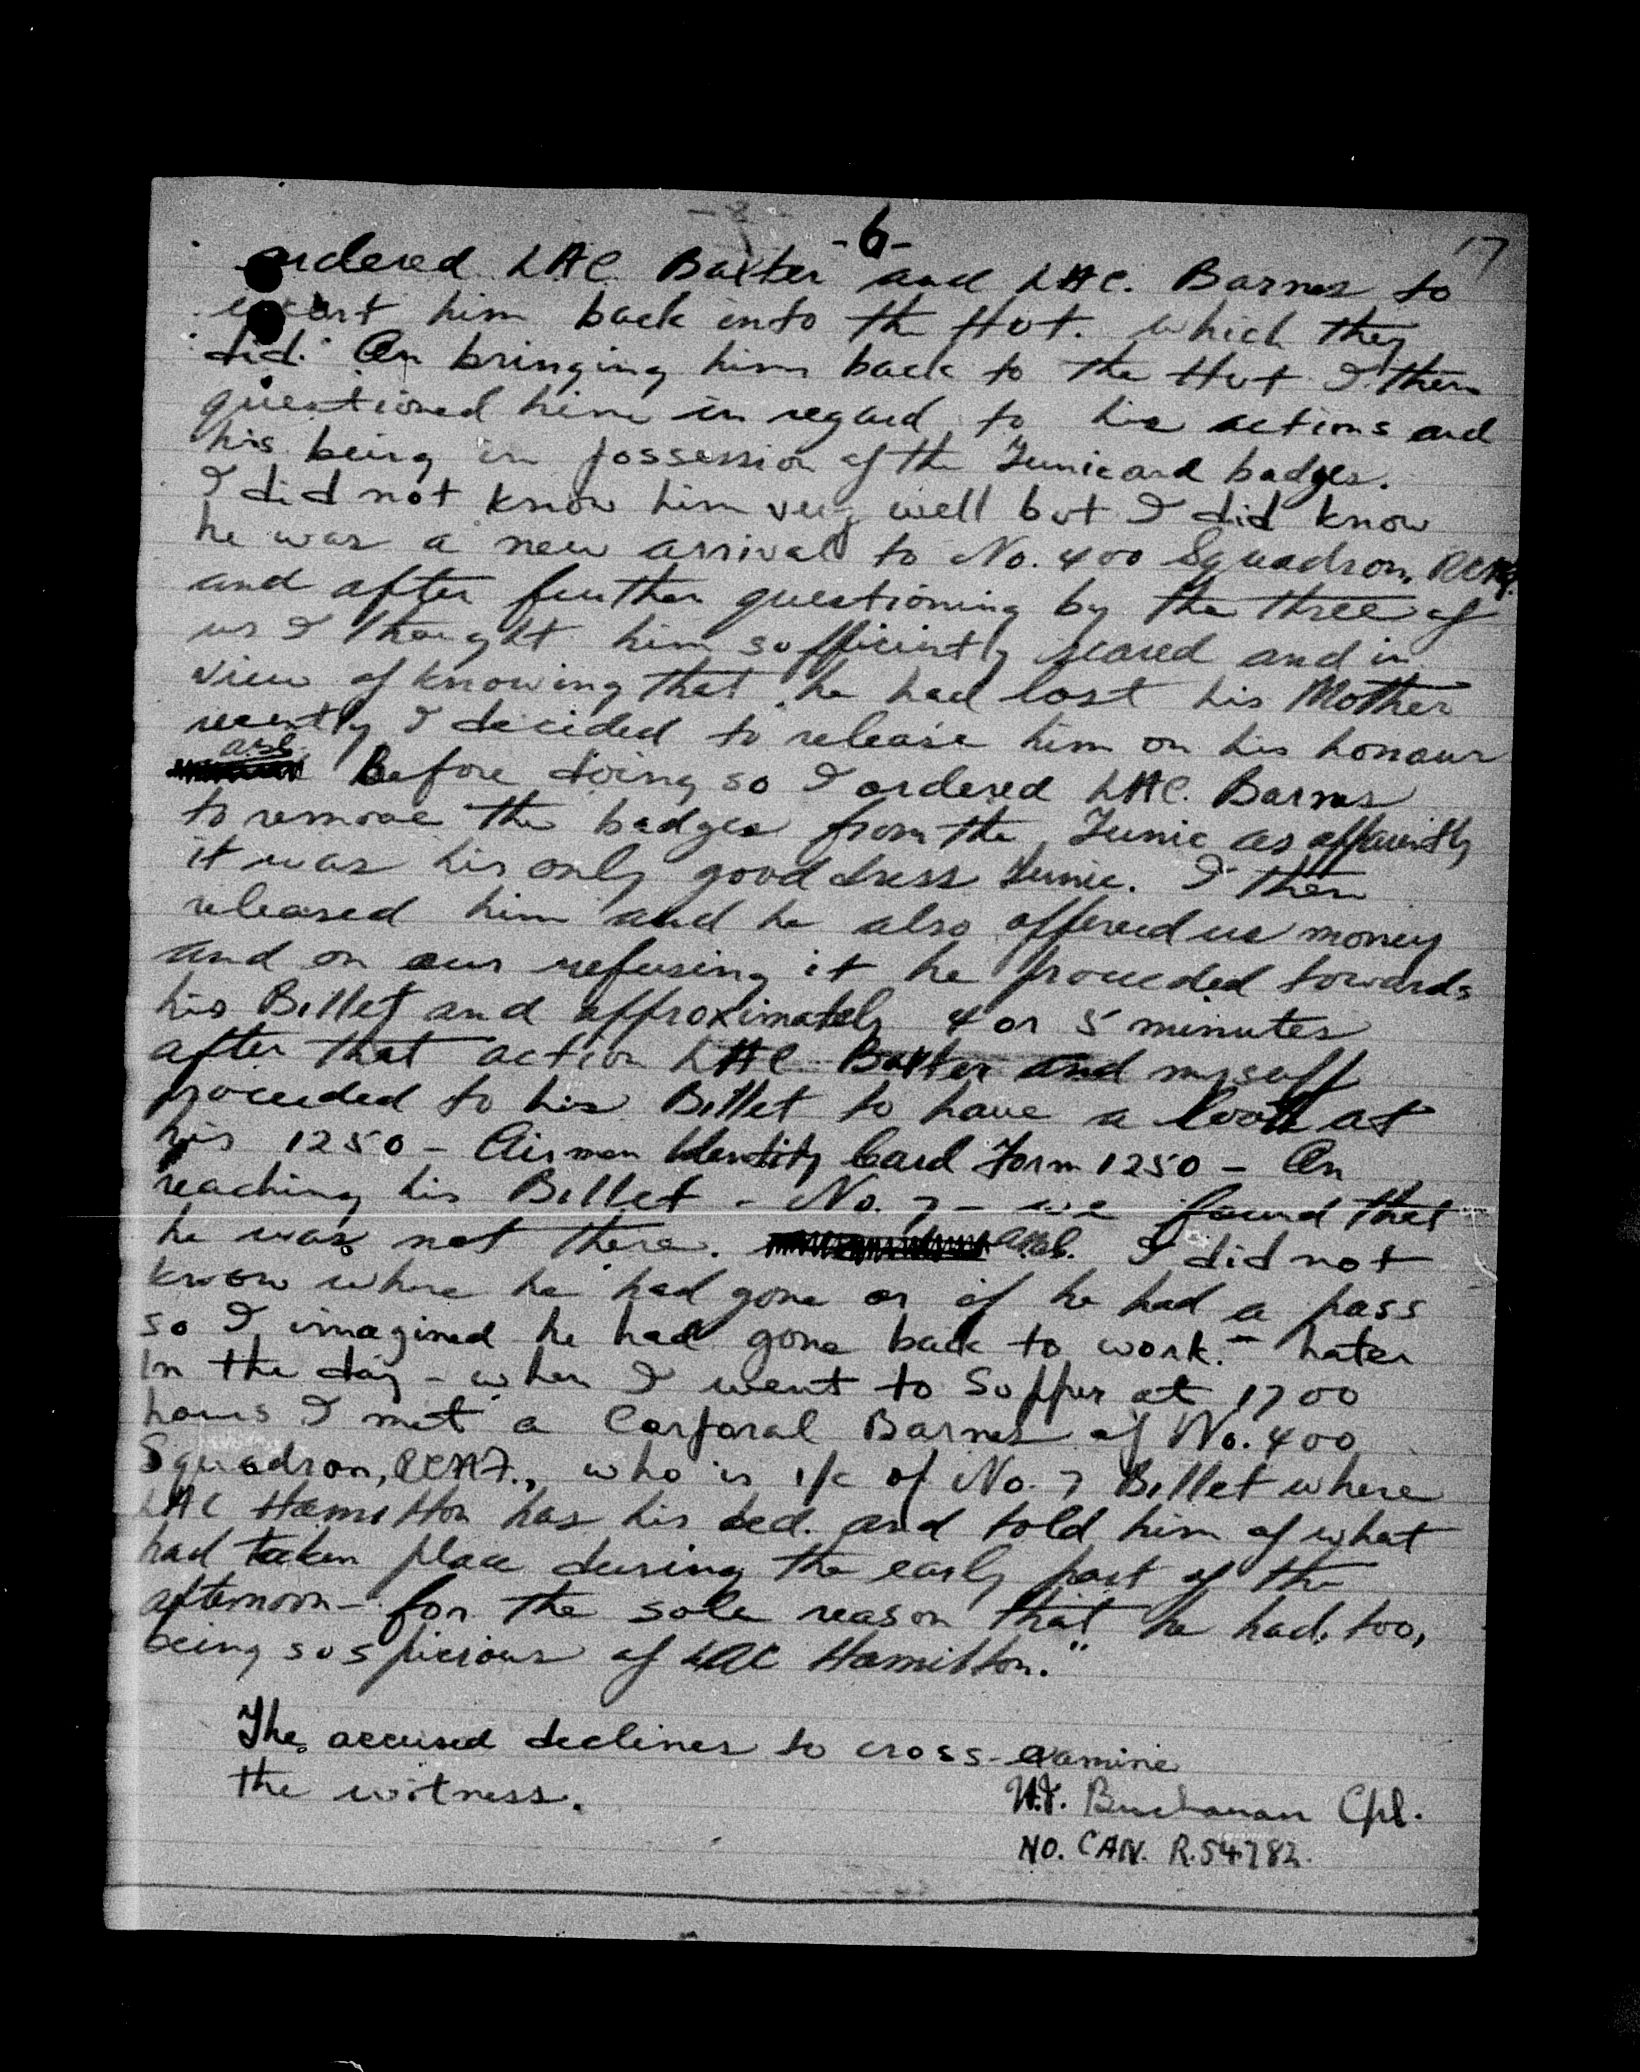 -6-
17
ordered LAC. Baxter and LAC. Barnes to
escort him back into the Hut. which they
did. On bringing him back to the Hut I then
questioned him in regard to his actions and
his being in possession of the Tunic and badges.
I did not know him very well but I did know
he was a new arrival to No. 400 Squadron, RCAF.
and after further questioning by the three of
us I thought him sufficiently scared and in
view of knowing that he had lost his Mother
recently I decided to release him on his honour
Before doing so I ordered LAC. Barnes
to remove the badges from the Tunic as apparently
it was his only good dress tunic. I then
released him and he also offered us money
and on our refusing it he proceeded towards
his Billet and approximately 4 or 5 minutes
after that action LAC Baxter and myself
proceeded to his Billet to have a look at
his 1250 - Airmen Identity Card Form 1250 - On
reaching his Billet - No. 7 - we found that
he was not there. I did not
know where he had gone or if he had a pass
so I imagined he had gone back to work. - Later
in the day - when I went to Supper at 1700
hours I met a Corporal Barnes of No. 400
Squadron, RCAF., who is i/c of No. 7 Billet where
LAC Hamilton has his bed. and told him of what
had taken place during the early part of the
afternoon - for the sole reason that he had, too,
being suspicious of LAC Hamilton."
The accused declines to cross-examine
the witness.
W.J. Buchanan Cpl.
NO. CAN. R.54782.